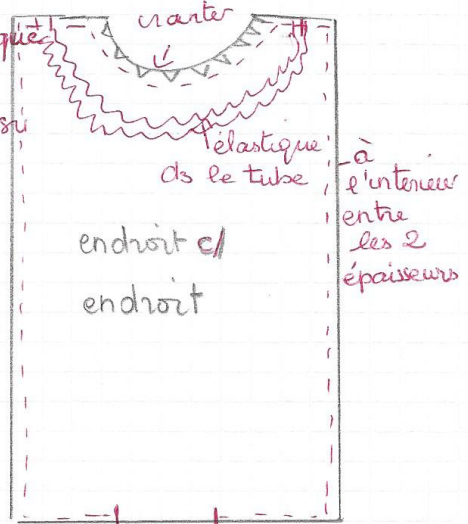 cranter
élastique
ds le tube
à
l'intérieur
entre
les 2
épaisseurs
endroit c/
endroit